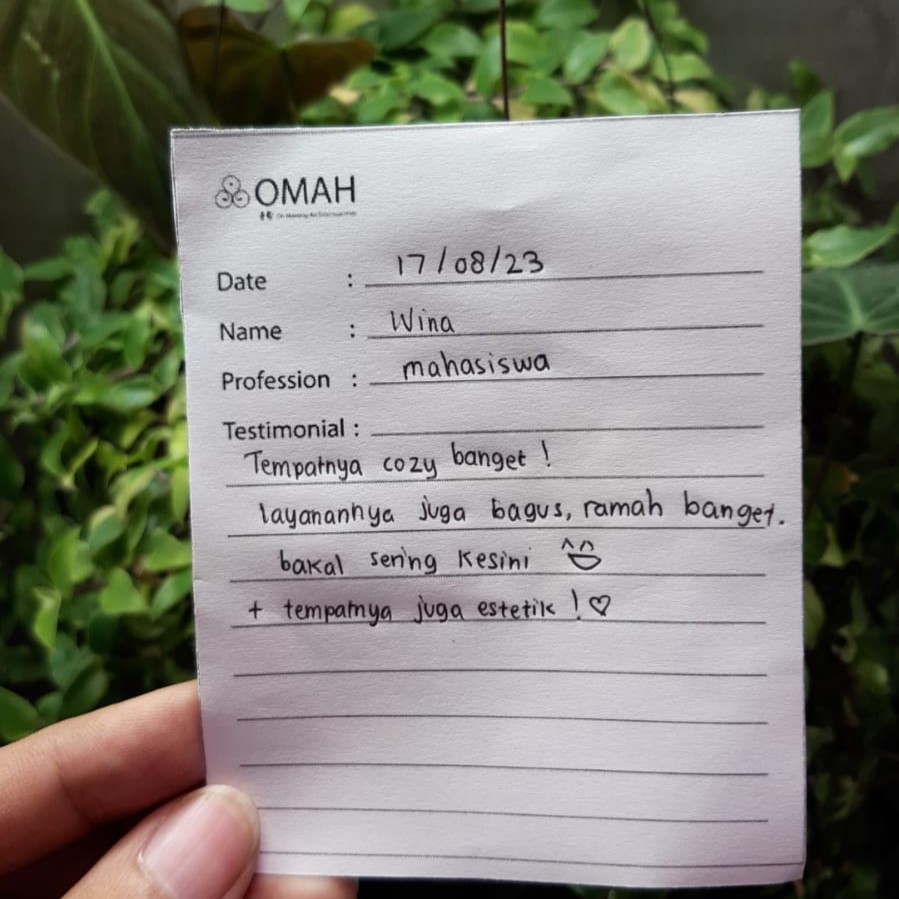 OMAH
Date : 17/08/23
Name : Wina
Profession : mahasiswa
Testimonial :
Tempatnya cozy banget !
layanannya juga bagus, ramah banget.
bakal sering kesini
+ tempatnya juga estetik ! ♡